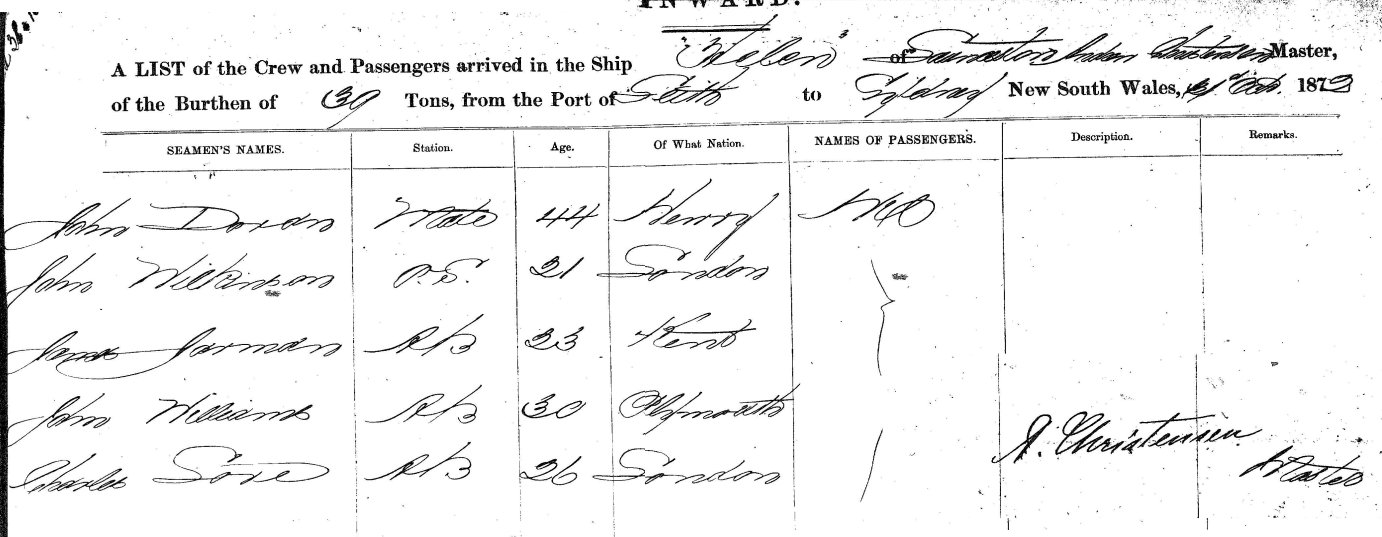 INWARD.
A LIST of the Crew and Passengers arrived in the Ship "Helen" of Master,
of the Burthen of 39 Tons, from the Port of to Sydney New South Wales, 1873
SEAMEN'S NAMES. Station. Age. Of What Nation. NAMES OF PASSENGERS. Description. Remarks.
John Doran Mate 44 Henry Nil
John Wilkinson O.S. 21 London
James Jarman AB 23 Kent
John Williams AB 30 Plymouth
Charles Love AB 26 London
A. Christensen
Master